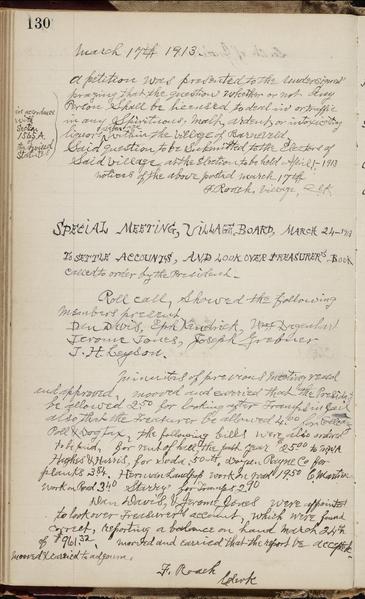 130
March 17th 1913.
A petition was presented to the undersigned
praying that the question whether or not Any
Person Shall be licensed to deal in or traffic
in any Spirituous, Malt, ardent, or intoxicating
liquors within the Village of Barneveld.
in accordance
with
Section
1565A.
the Revised
Statutes
Said question to be Submitted to the Electors of
Said Village at the Election to be held April 1- 1913
notices of the above posted March 17th
F. Roach, Village, Clk
SPECIAL MEETING, VILLAGE, BOARD, MARCH 24-1913
TO SETTLE ACCOUNTS, AND LOOK OVER TREASURER'S BOOK
called to order by the President-
Roll call, Showed the following
members present
Dan Davis, Eph Kendrick,
Jerome Jones, Joseph
T. H. Leyson.
minutes of previous meeting read
and approved, moved and carried that the President
be allowed 2 50 for looking after in Jail
also that the Treasurer be allowed for
Poll & Dog Tax, the following bills were also ordered
to be paid, for rent of hall the past year 25 00 to
& Harris, for 50 cts, Payne Co for
planks 3 84, work on road 19 50
work on Road 3 40 for 2 10
Dan Davis, & Jerome Jones were appointed
to look over Treasurer's account, which were found
correct, reporting a balance on hand March 24th
of $961 32 moved and carried that the report be accepted.
moved & carried to adjourn.
F. Roach
Clerk